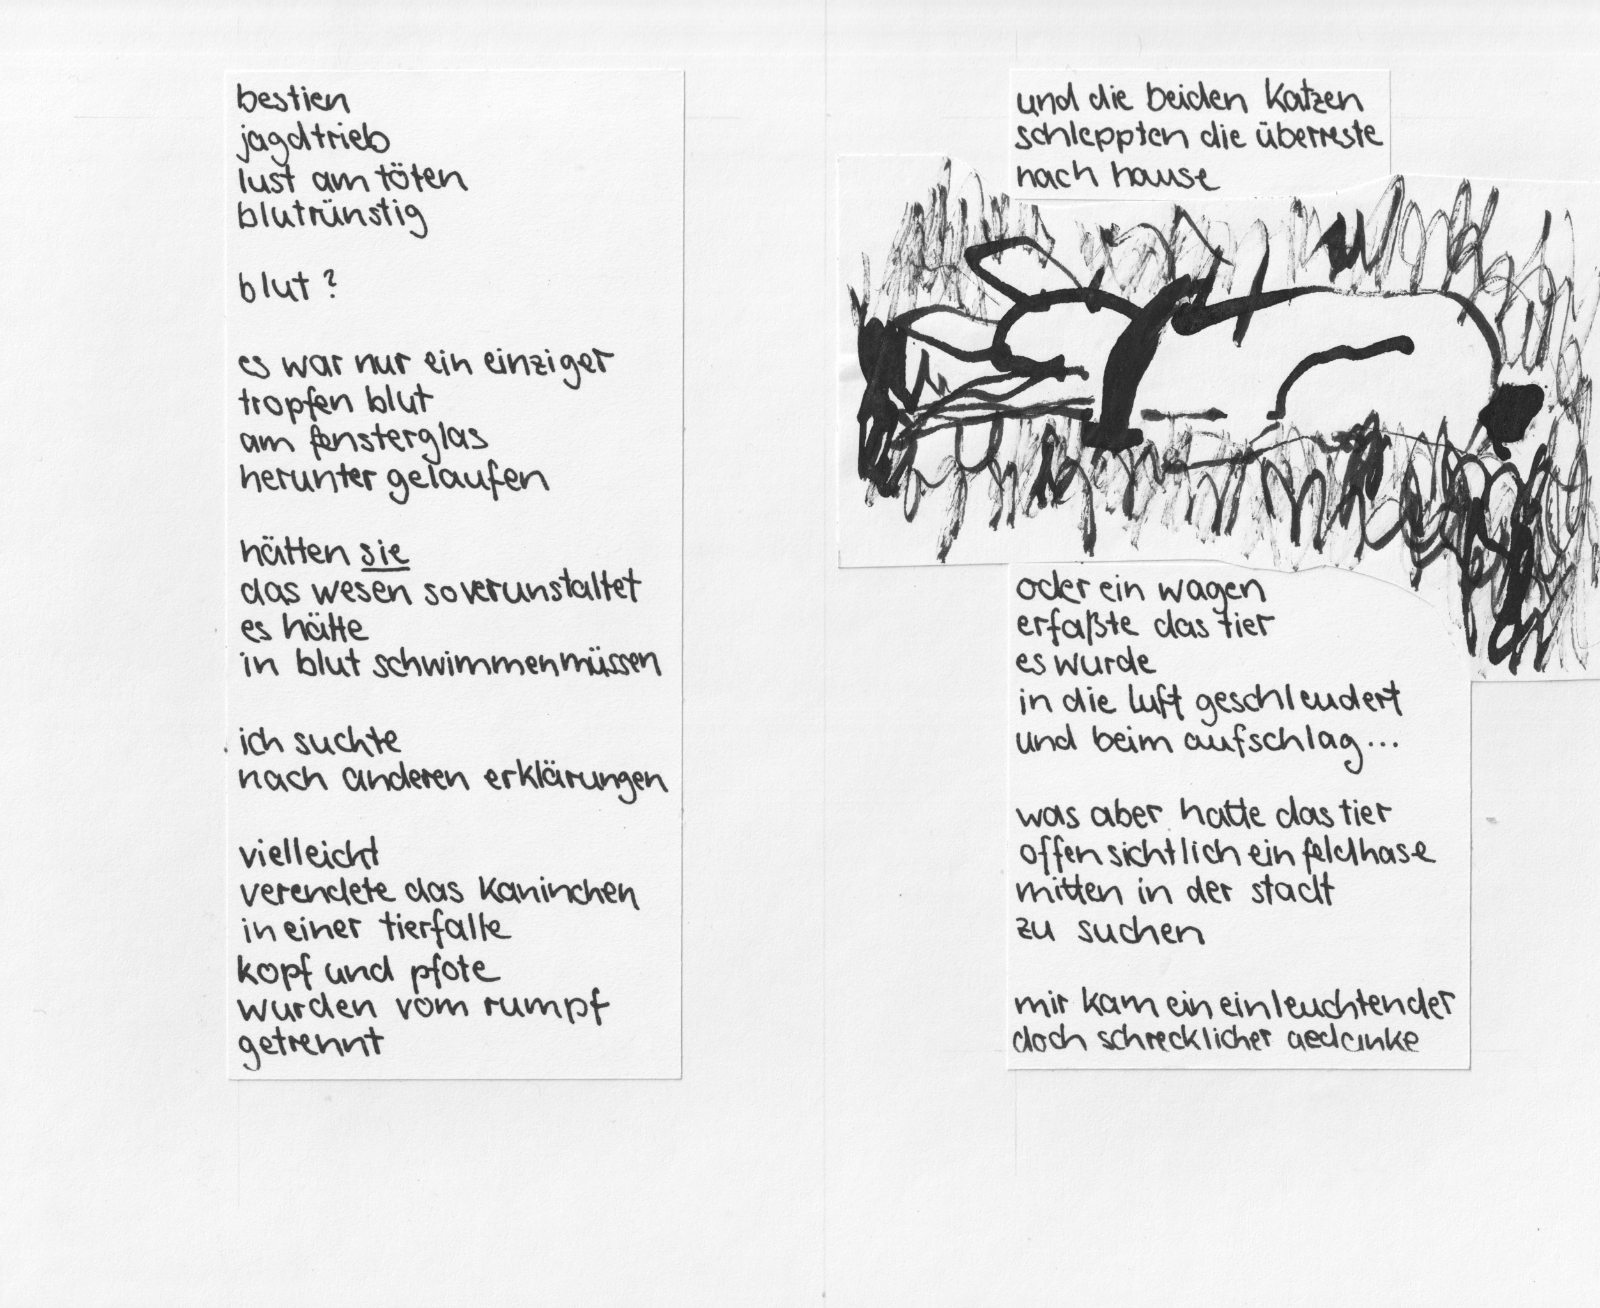 bestien
jagdtrieb
lust am töten
blutrünstig
blut?
es war nur ein einziger
tropfen blut
am fensterglas
herunter gelaufen
hätten sie
das wesen so verunstaltet
es hätte
in blut schwimmen müssen
ich suchte
nach anderen erklärungen
vielleicht
verendete das kaninchen
in einer tierfalle
kopf und pfote
wurden vom rumpf
getrennt
und die beiden katzen
schleppten die überreste
nach hause
oder ein wagen
erfaßte das tier
es wurde
in die luft geschleudert
und beim aufschlag...
was aber hatte das tier
offensichtlich ein feldhase
mitten in der stadt
zu suchen
mir kam ein einleuchtender
doch schrecklicher gedanke